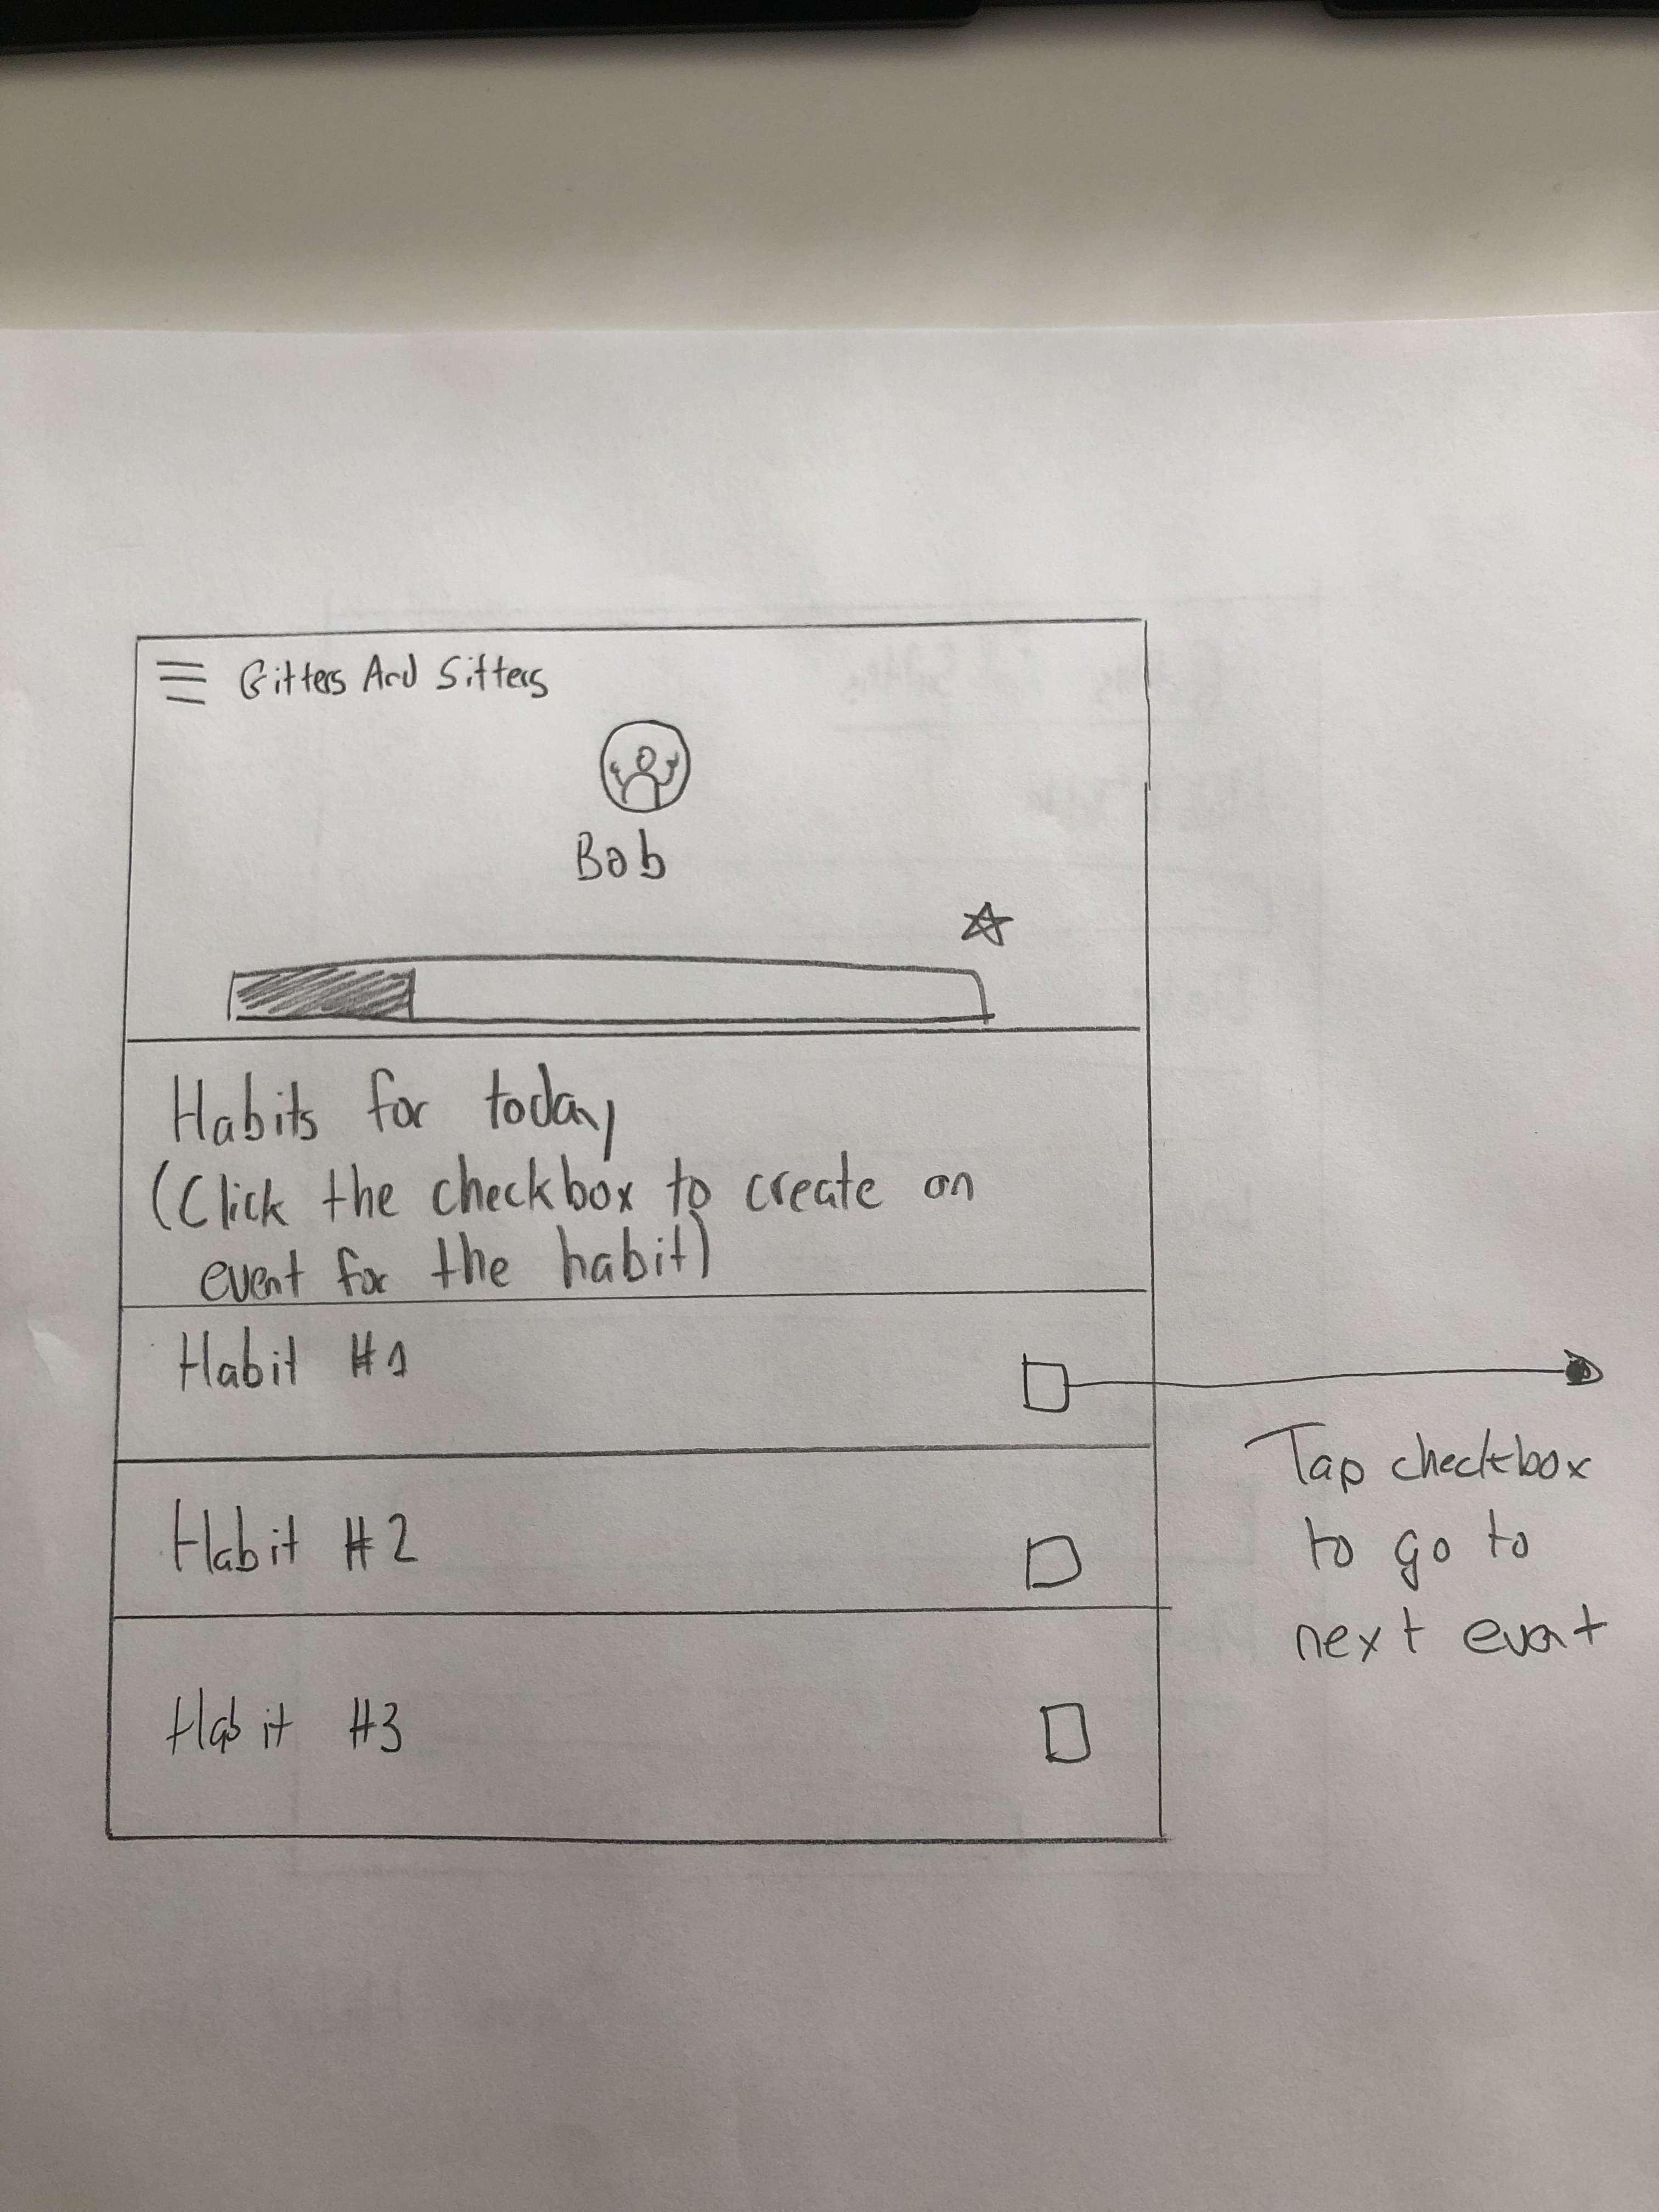 Gitters And Sitters
Bob
Habits for today
(Click the checkbox to create an
event for the habit)
Habit #1
Tap checkbox
to go to
next event
Habit #2
Habit #3